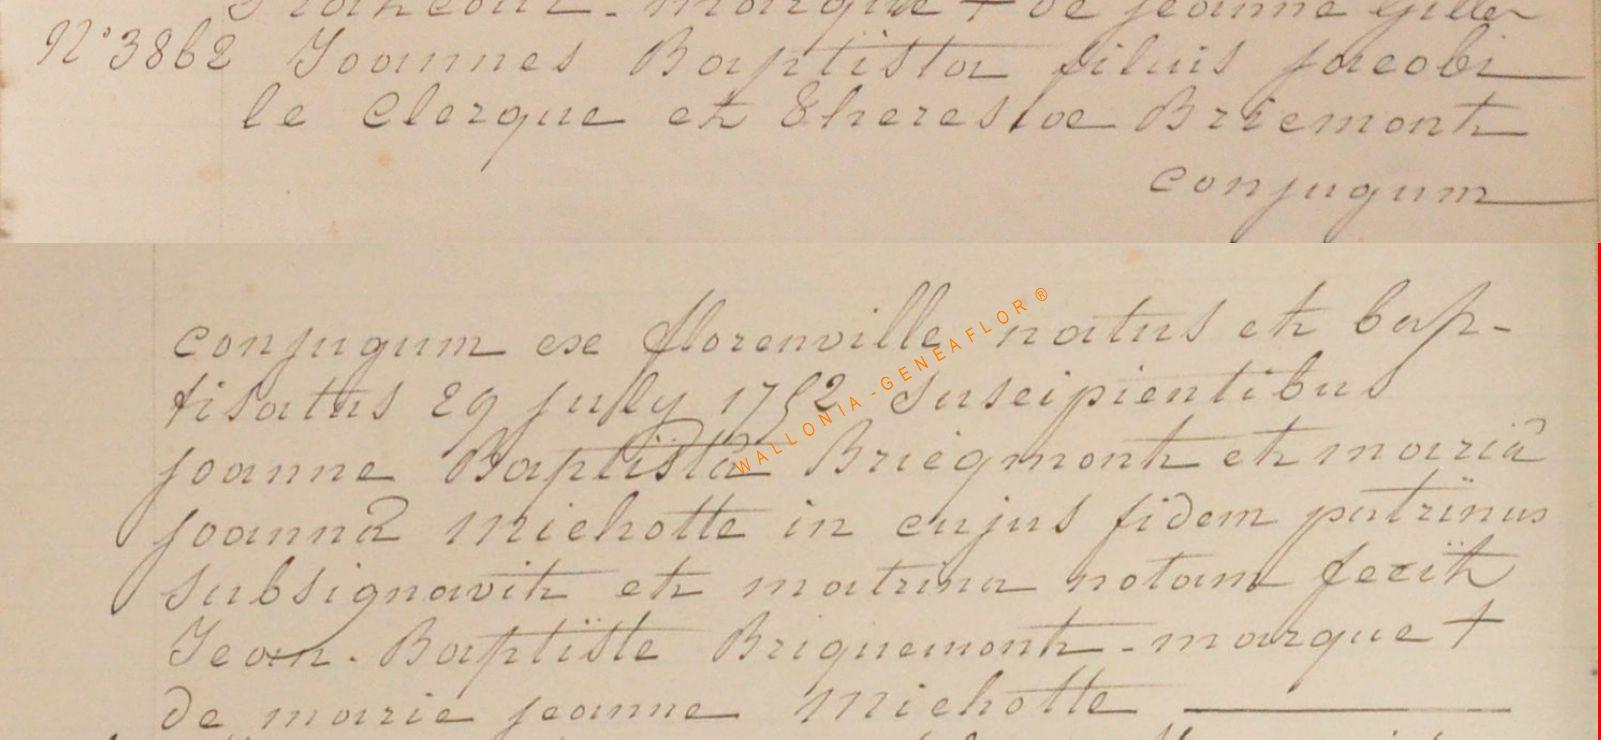 marque + de jeanne Gillet
N° 3862 Joannes Baptista filuis jacobi
le Clerque et Theresioe Briemont
conjugum
conjugum exe florenville natus et bap-
tisatus 29 jully 1752 Suscipientibus
joanne Baptista Briegmont et mariâ
joannâ Michotte in cujus fidem patrinus
subsignavit et matrina notam fecit
Jean-Baptiste Briquemont - marque +
de marie jeanne Michotte
WALLONIA-GENEAFLOR ®